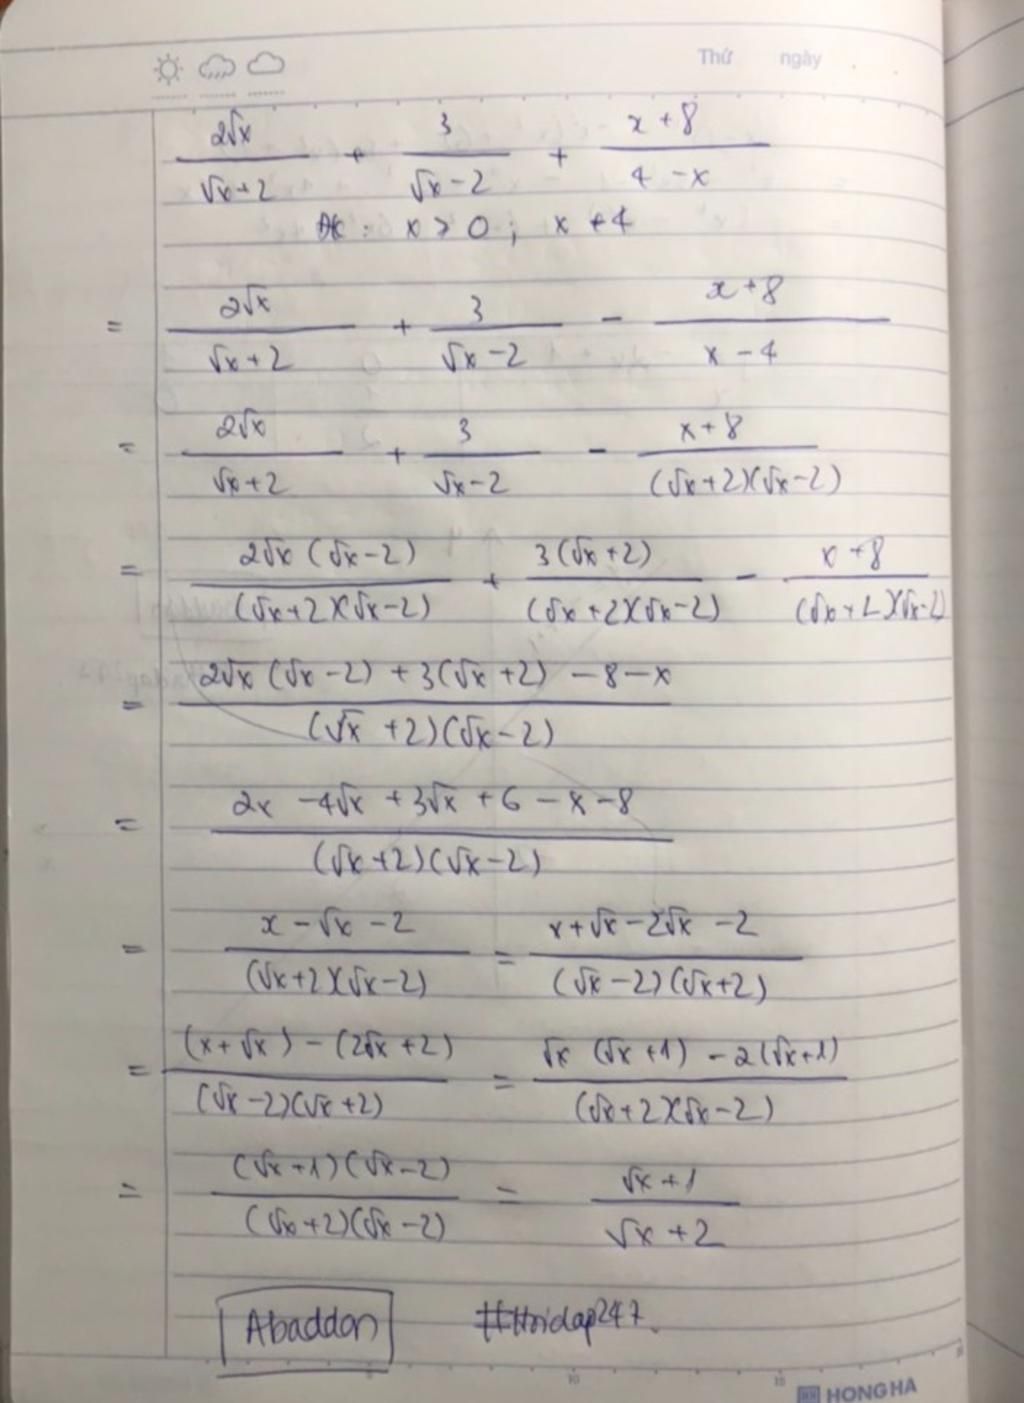 Thứ ngày
2√x/(√x+2) + 3/(√x-2) + (x+8)/(4-x)
ĐK: x > 0; x ≠ 4
= 2√x/(√x+2) + 3/(√x-2) - (x+8)/(x-4)
= 2√x/(√x+2) + 3/(√x-2) - (x+8)/((√x+2)(√x-2))
= 2√x(√x-2)/((√x+2)(√x-2)) + 3(√x+2)/((√x+2)(√x-2)) - (x+8)/((√x+2)(√x-2))
= (2√x(√x-2) + 3(√x+2) - 8 - x)/((√x+2)(√x-2))
= (2x - 4√x + 3√x + 6 - x - 8)/((√x+2)(√x-2))
= (x - √x - 2)/((√x+2)(√x-2)) = (x + √x - 2√x - 2)/((√x-2)(√x+2))
= ((x+√x) - (2√x+2))/((√x-2)(√x+2)) = (√x(√x+1) - 2(√x+1))/((√x+2)(√x-2))
= ((√x+1)(√x-2))/((√x+2)(√x-2)) = (√x+1)/(√x+2)
Abaddon #Hoidap247.
10 15
HONG HA